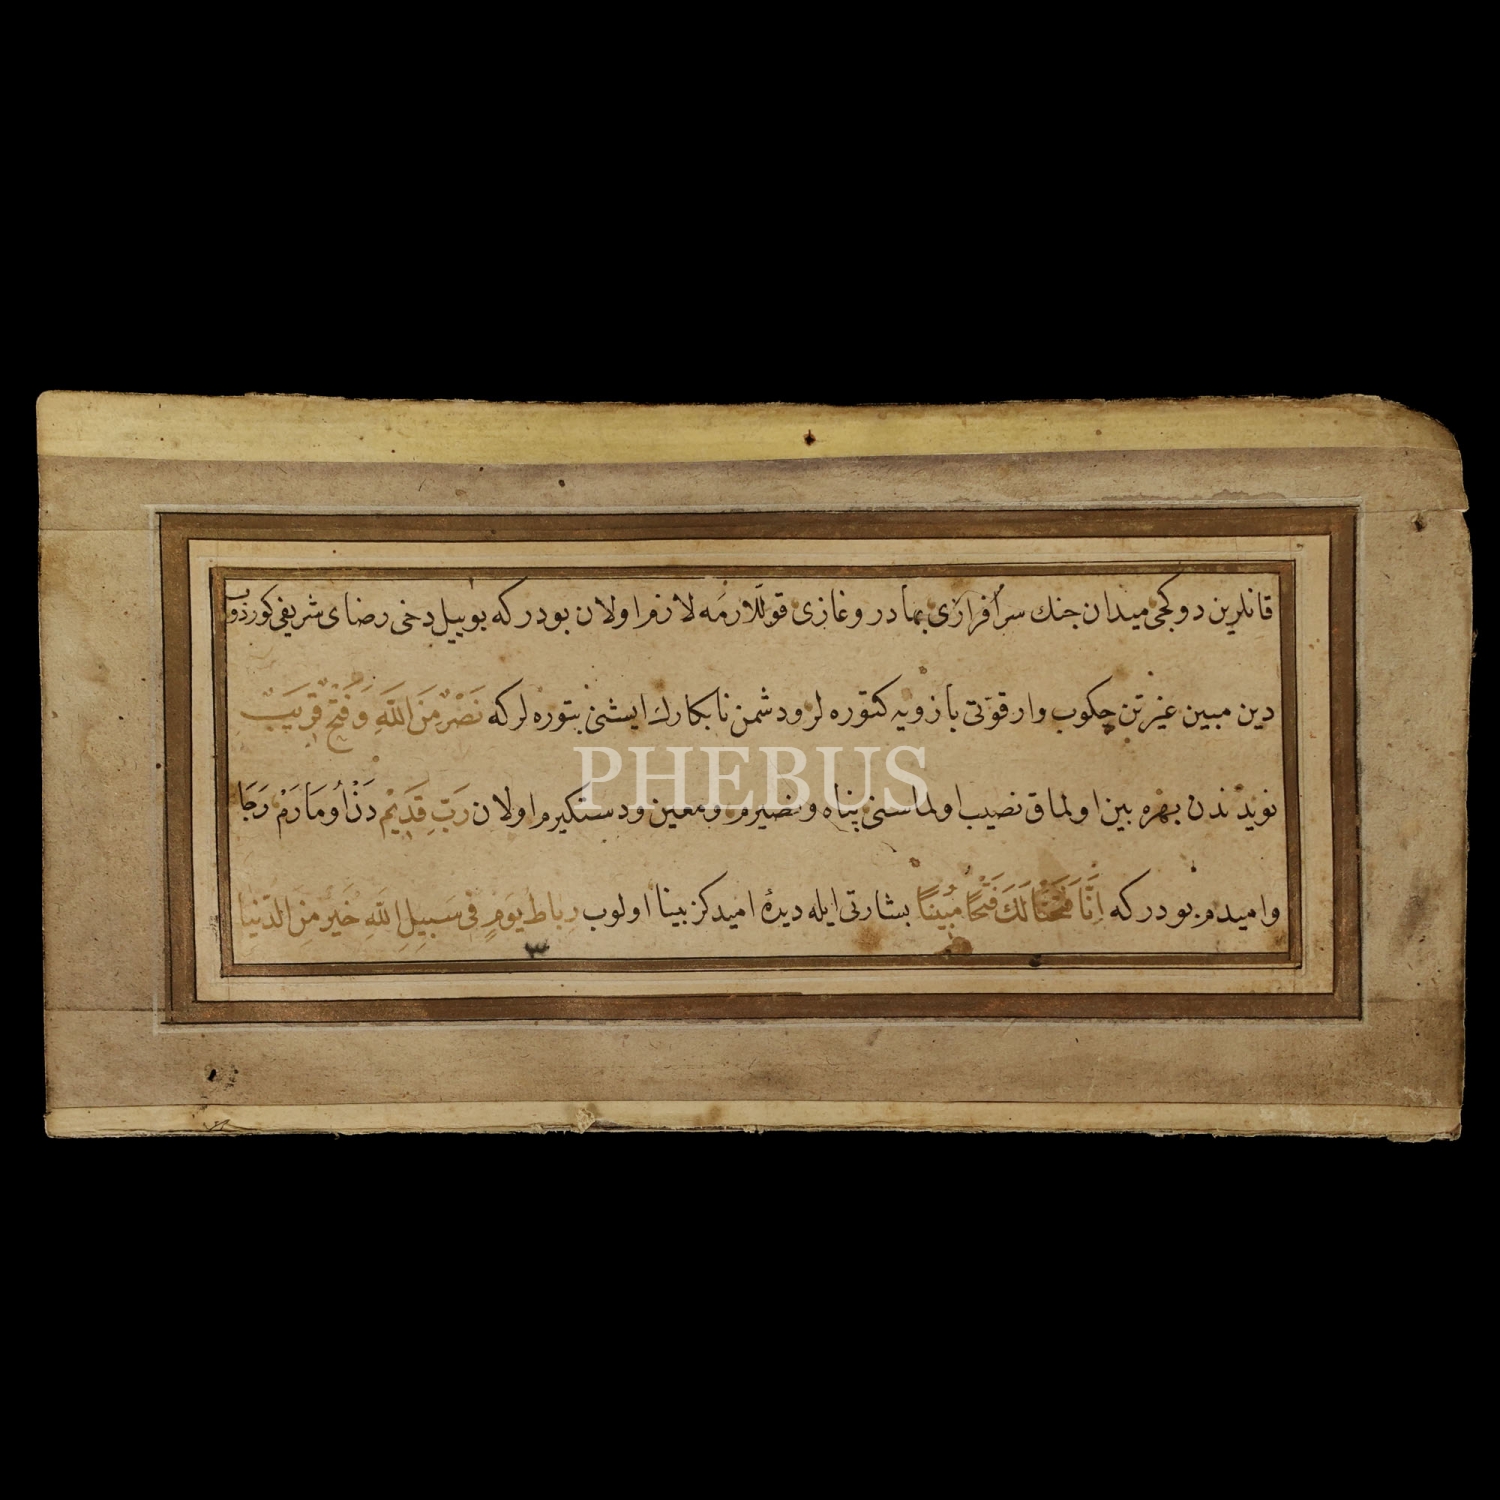 قانلرین دوكجی میدان جنك سرافرازی بهادر و غازی قوللارمه لازم اولان بودر كه بو ییل دخی رضای شریفی كوزدوب
دین مبین غیرتن چكوب وار قوتی بازویه كتوره لر و دشمن نابكارك ایشنی بتوره لر كه نَصْرٌ مِنَ اللّٰهِ وَ فَتْحٌ قَرِیبٌ
PHEBUS
نویدندن بهره بین اولماق نصیب اولماسنی پناه و نصیرم و معین و دستكیرم اولان رَبِّ قَدِیمْ دَنْ اُومَارَمْ رَجَا
و امیدم بودر كه اِنَّا فَتَحْنَا لَكَ فَتْحًا مُبِینًا بشارتی ایله دیدۀ امیدكز بینا اولوب رِبَاطُ یَوْمٍ فِی سَبِیلِ اللّٰهِ خَیْرٌ مِنَ الدُّنْیَا